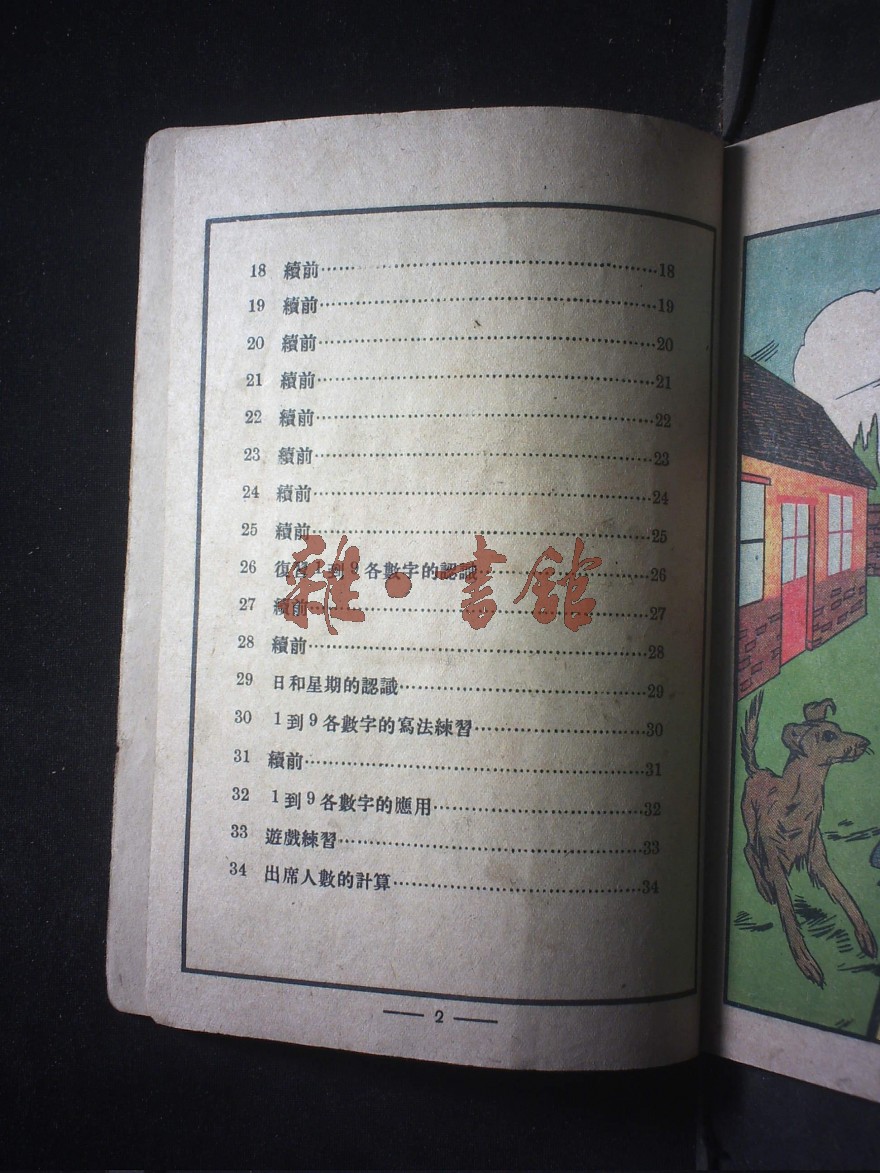 18 續前……18
19 續前……19
20 續前……20
21 續前……21
22 續前……22
23 續前……23
24 續前……24
25 續前……25
26 復習1到9各數字的認識……26
27 續前……27
28 續前……28
29 日和星期的認識……29
30 1到9各數字的寫法練習……30
31 續前……31
32 1到9各數字的應用……32
33 遊戲練習……33
34 出席人數的計算……34
— 2 —
雜·書館